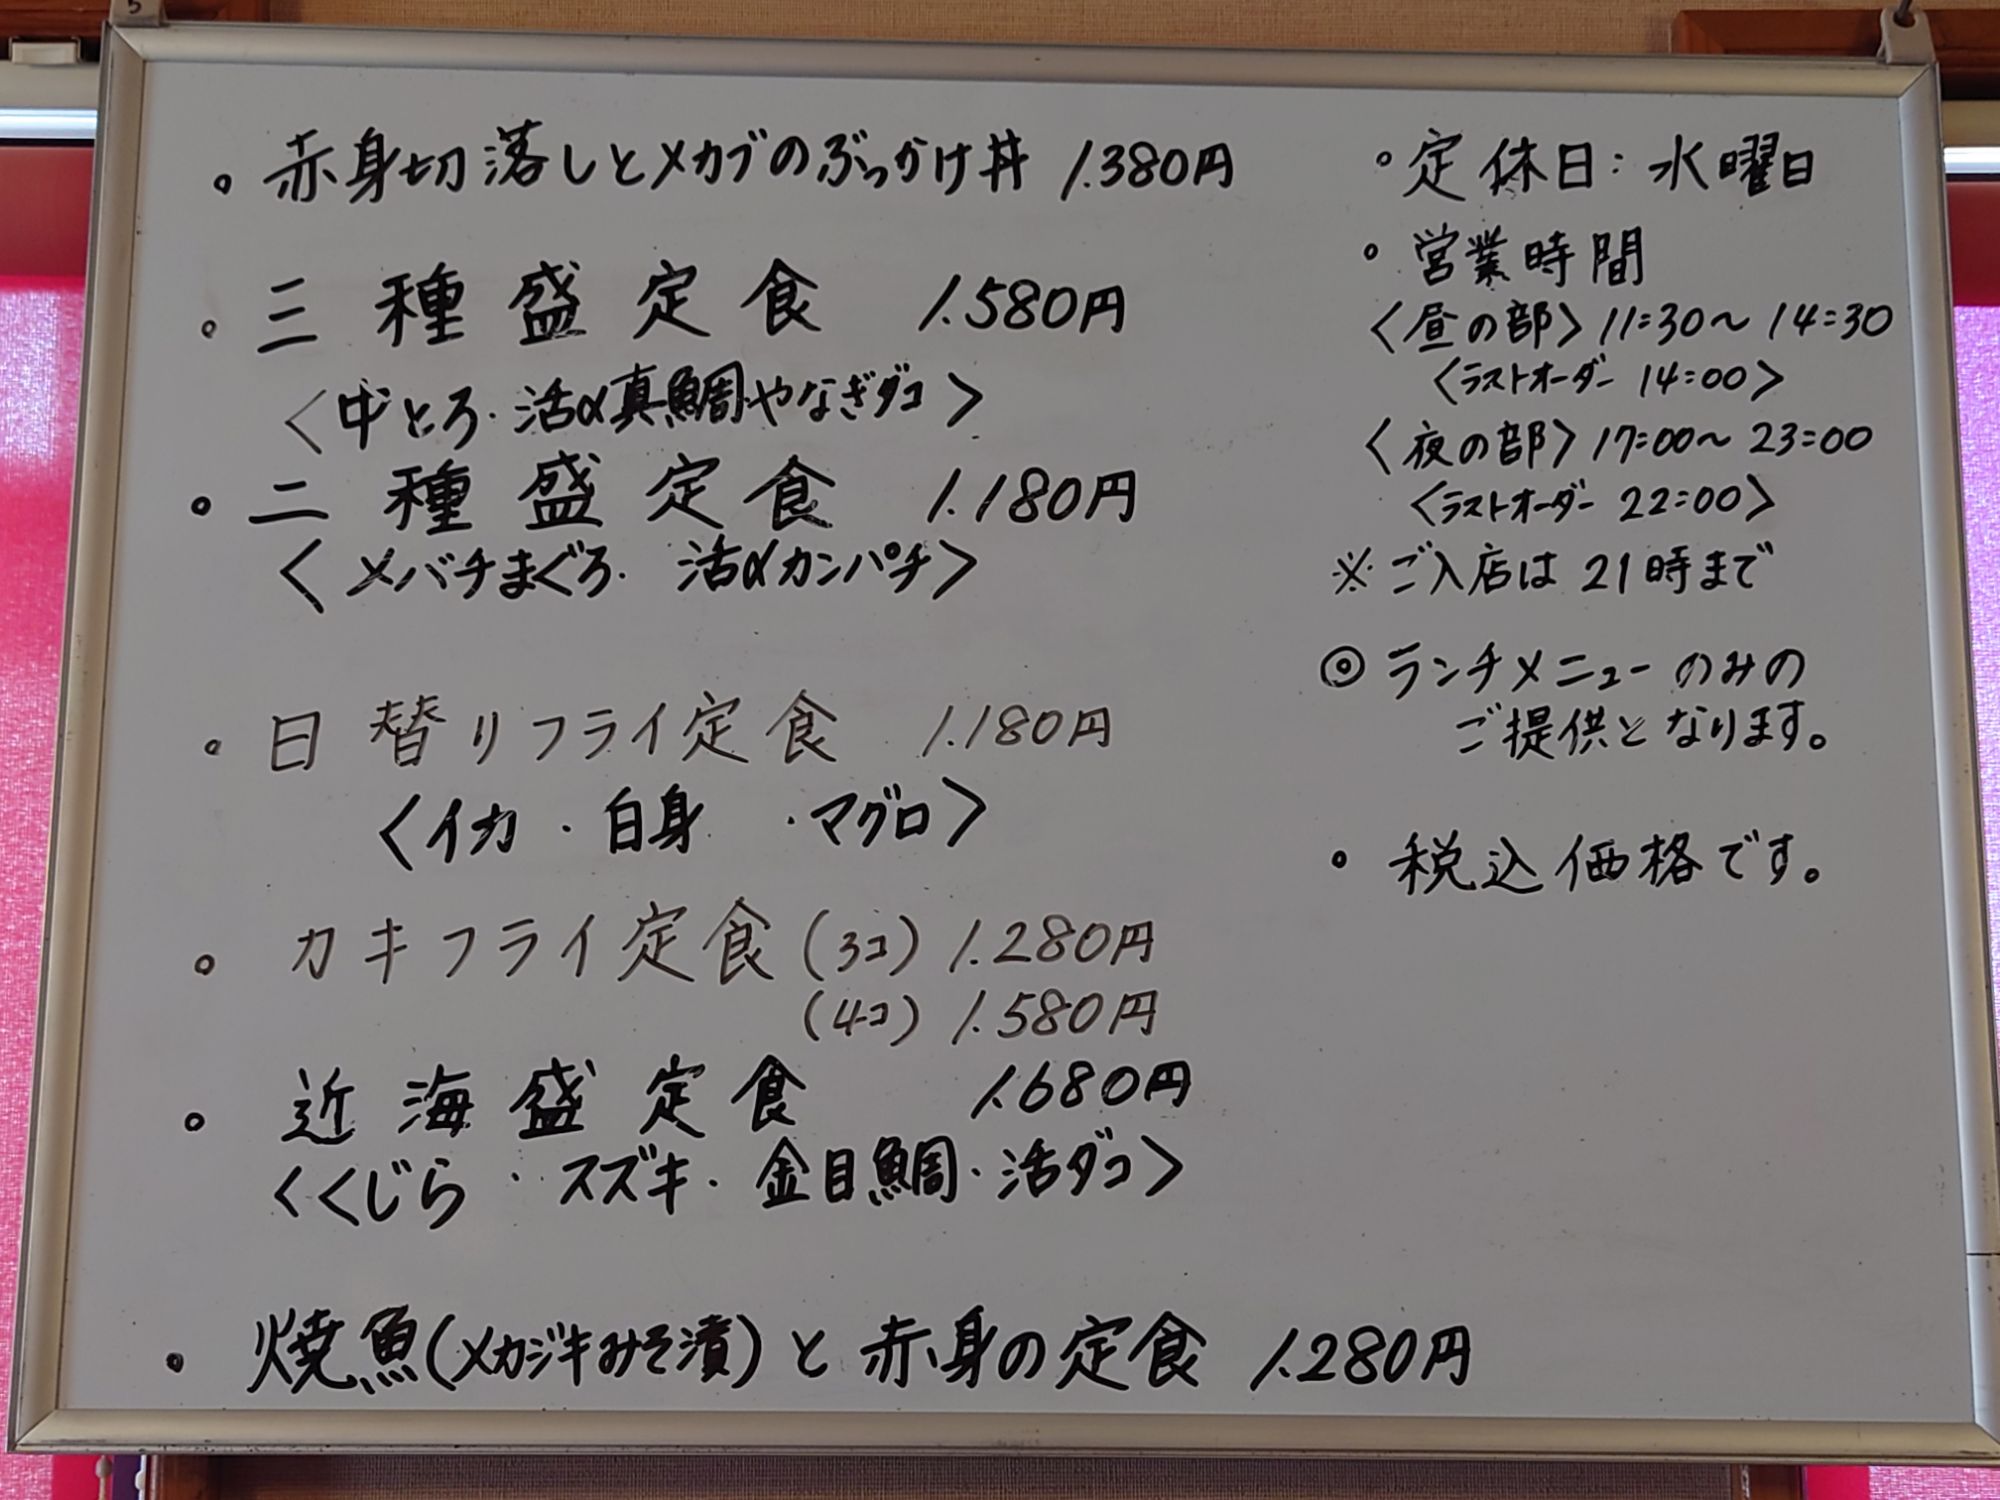 。赤身切落しとメカブのぶっかけ丼 1.380円
。三種盛定食 1.580円
〈中とろ・活〆真鯛やなぎダコ〉
。二種盛定食 1.180円
〈メバチまぐろ・活〆カンパチ〉
。日替りフライ定食 1.180円
〈イカ・白身・マグロ〉
。カキフライ定食(3コ) 1.280円
(4コ) 1.580円
。近海盛定食 1.680円
〈くじら・スズキ・金目鯛・活ダコ〉
。焼魚(メカジキみそ漬)と赤身の定食 1.280円
。定休日:水曜日
。営業時間
〈昼の部〉11:30〜14:30
〈ラストオーダー 14:00〉
〈夜の部〉17:00〜23:00
〈ラストオーダー 22:00〉
※ご入店は21時まで
◎ランチメニューのみの
ご提供となります。
。税込価格です。